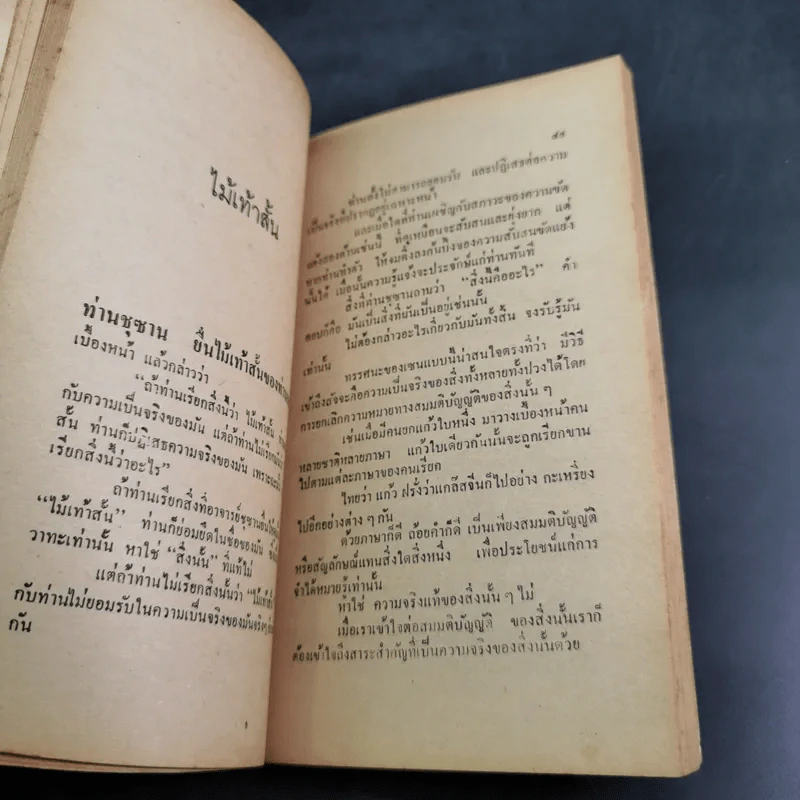 ไม้เท้าสั้น
ท่านชุซาน ยื่นไม้เท้าสั้นของท่าน
เบื้องหน้า แล้วกล่าวว่า
“ถ้าท่านเรียกสิ่งนี้ว่า ไม้เท้าสั้น
กับความเป็นจริงของมัน แต่ถ้าท่านไม่เรียก
สั้น ท่านก็ปฏิเสธความจริงของมัน เพราะฉะนั้น
เรียกสิ่งนี้ว่าอะไร”
ถ้าท่านเรียกสิ่งที่อาจารย์ชุซานยื่น
“ไม้เท้าสั้น” ท่านก็ย่อมยึดในชื่อของมัน
วาทะเท่านั้น หาใช่ “สิ่งนั้น” ที่แท้ไม่
แต่ถ้าท่านไม่เรียกสิ่งนั้นว่า “ไม้เท้าสั้น
กับท่านไม่ยอมรับในความเป็นจริงของมันจริงๆ
กัน
๕๕
ท่านทั้งไม่สามารถยอมรับ และปฏิเสธต่อความ
เป็นจริงที่ปรากฏอยู่เฉพาะหน้า
และเมื่อใดที่ท่านเผชิญกับสภาวะของความขัด
แต้งสองด้านเช่นนี้ ที่ดูเหมือนจะสับสนและยุ่งยาก แต่
หากท่านทำตัว ให้จมดิ่งลงก้นบึ้งของความสับสนขัดแย้ง
นั้นได้ เมื่อนั้นความรู้แจ้งจะประจักษ์แก่ท่านทันที
สิ่งที่ท่านชุซานถามว่า “สิ่งนี้คืออะไร” คำ
ตอบก็คือ มันเป็นสิ่งที่มันเป็นอยู่เช่นนั้น
ไม่ต้องกล่าวอะไรเกี่ยวกับมันทั้งสิ้น จงรับรู้มัน
เท่านั้น ทรรศนะของเซนแบบนี้น่าสนใจตรงที่ว่า มีวิธี
เข้าถึงสัจจะคือความเป็นจริงของสิ่งทั้งหลายทั้งปวงได้โดย
การยกเลิกความหมายทางสมมติบัญญัติของสิ่งนั้น ๆ
เช่นเมื่อมีคนยกแก้วใบหนึ่ง มาวางเบื้องหน้าคน
หลายชาติหลายภาษา แก้วใบเดียวกันนั้นจะถูกเรียกขาน
ไปตามแต่ละภาษาของคนเรียก
ไทยว่า แก้ว ฝรั่งว่าแกล๊สจีนก็ไปอย่าง กะเหรี่ยง
ไปอีกอย่างต่าง ๆ กัน
ด้วยภาษาก็ดี ถ้อยคำก็ดี เป็นเพียงสมมติบัญญัติ
หรือสัญลักษณ์แทนสิ่งใดสิ่งหนึ่ง เพื่อประโยชน์แก่การ
จำได้หมายรู้เท่านั้น
หาใช่ ความจริงแท้ของสิ่งนั้น ๆ ไม่
เมื่อเราเข้าใจต่อสมมติบัญญัติ ของสิ่งนั้นเราก็
ต้องเข้าใจถึงสาระสำคัญที่เป็นความจริงของสิ่งนั้นด้วย